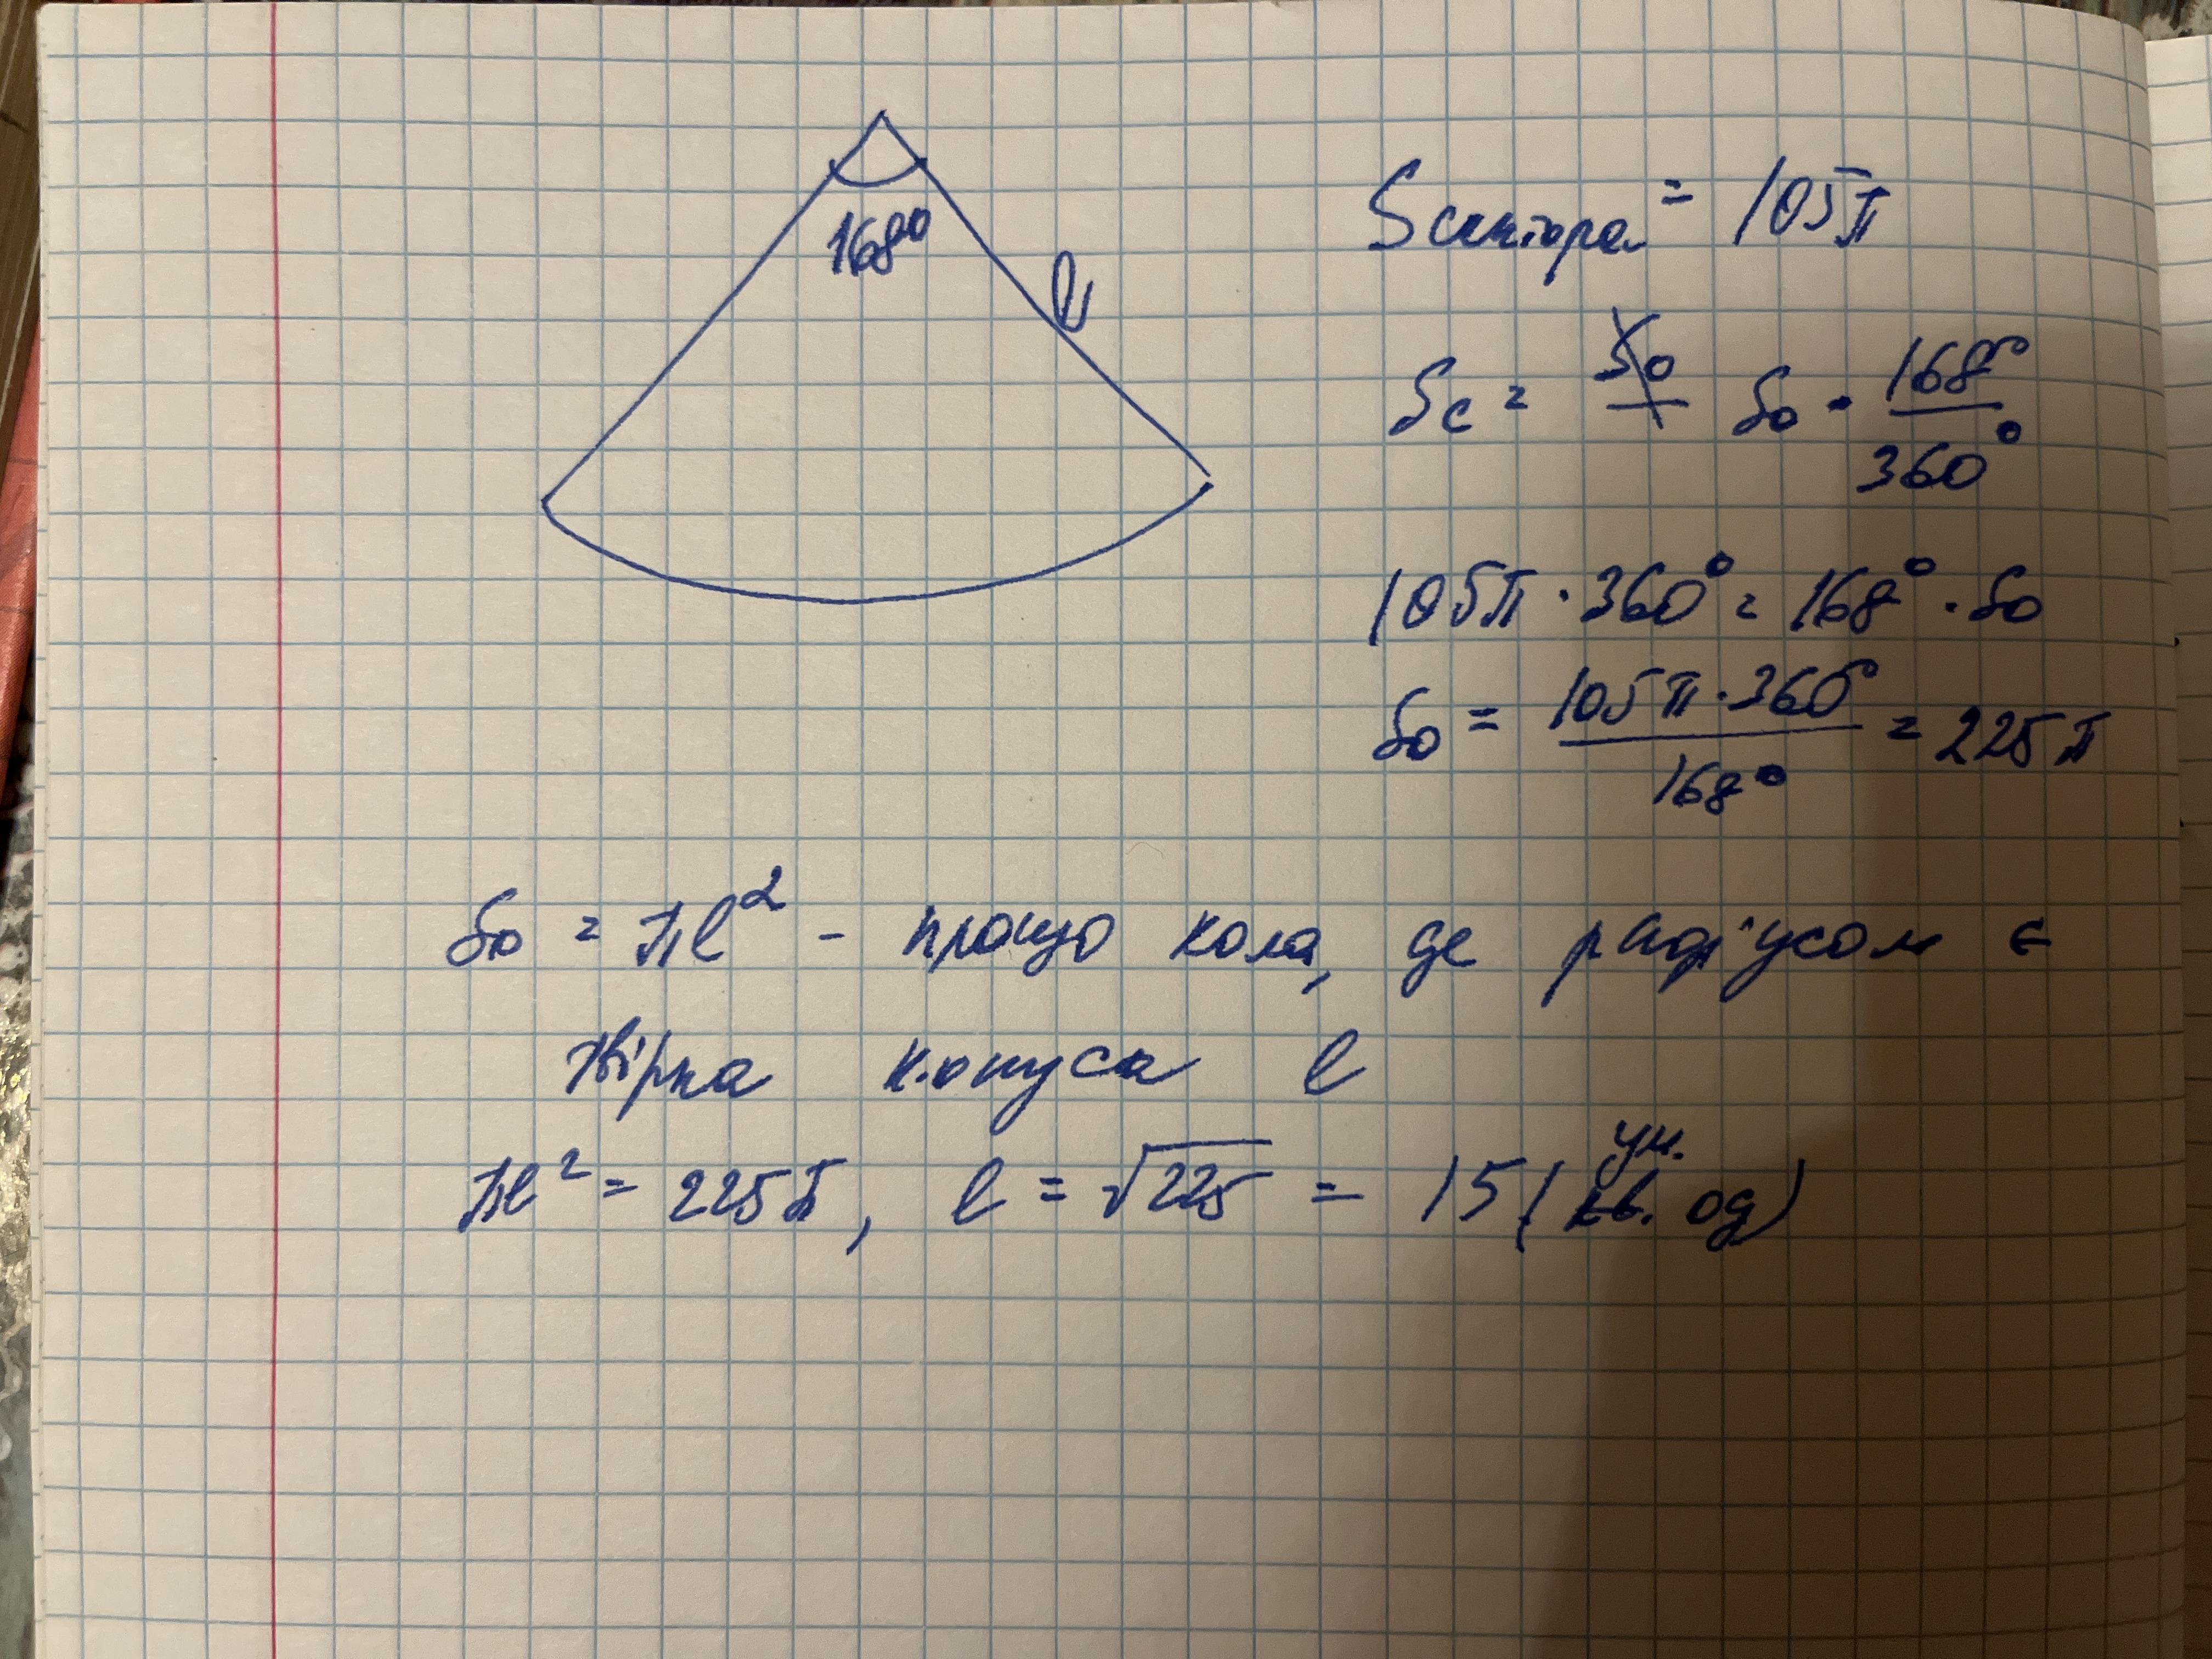 168°
l
Sсектора = 105π
Sc = So So · 168° / 360°
105π · 360° = 168° · So
So = 105π · 360° / 168° = 225π
So = πl² - площа кола, де радіусом є
твірна конуса l
πl² = 225π, l = √225 = 15 (ум. од)